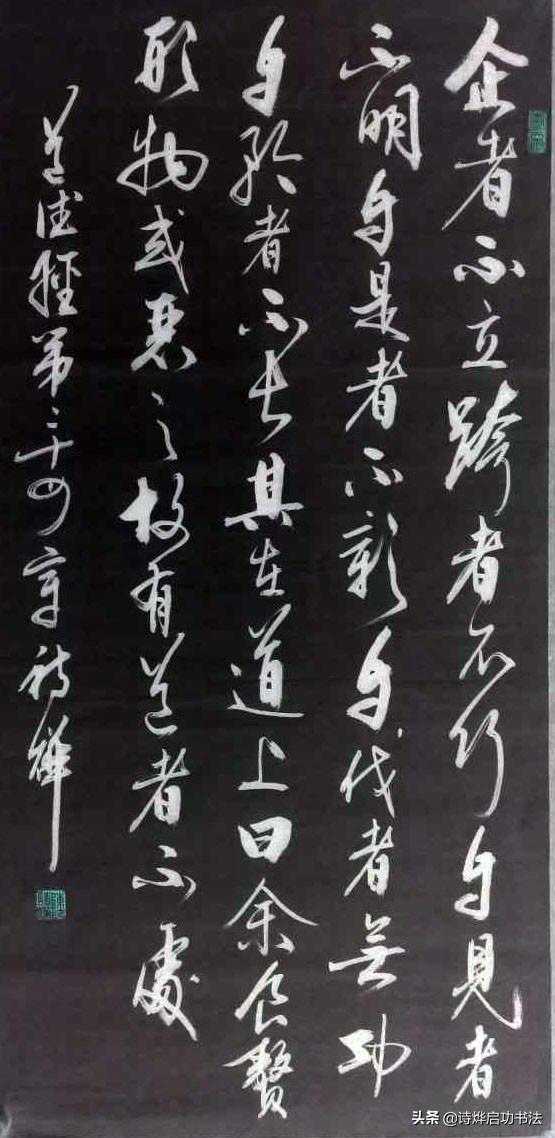 企者不立跨者不行自見者
不明自是者不彰自伐者無功
自矜者不長其在道上曰余食贅
形物或惡之故有道者不處
道德經第二十四章詩燁
头条 @诗烨启功书法